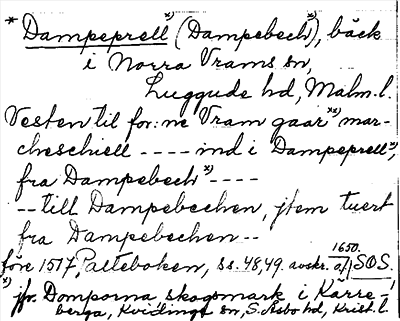 * Dampeprell*) (Dampebech*), bäck
i Norra Vrams sn,
Luggude hd, Malm. l.
Vesten til for: ne Vram gaar**) mar-
cheschiell ---- ind i Dampeprell*),
fra Dampebech*) ----
-- till Dampebechen, jtem tuert
fra Dampebechen --
före 1517 Palteboken, ss. 48, 49. avskr. 1650. af SOS.
*) jfr. Domporna skogsmark i Kärre-
berga, Kvidinge sn, S. Åsbo hd, Krist. l.